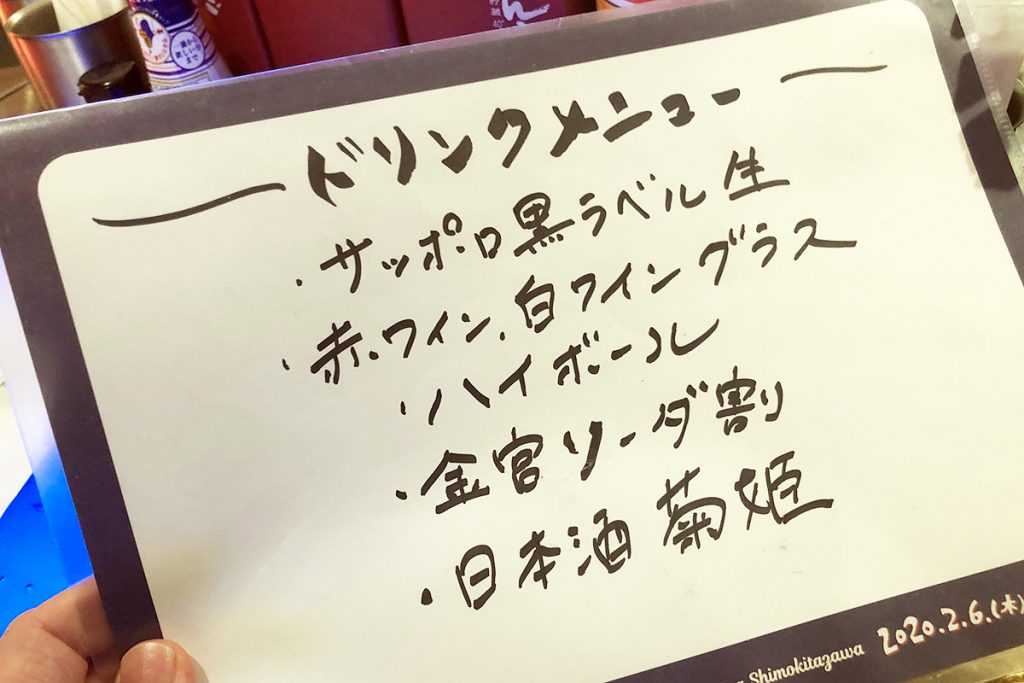 ドリンクメニュー
・サッポロ黒ラベル 生
・赤ワイン、白ワイン グラス
・ハイボール
・金宮ソーダ割
・日本酒 菊姫
Shimokitazawa 2020.2.6.(木)